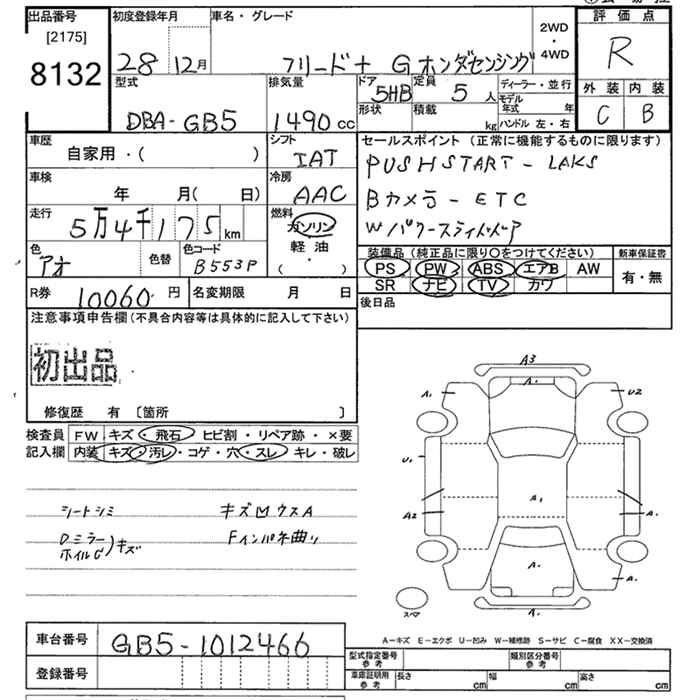 出品番号
[2175]
8132
初度登録年月
28 12月
車名・グレード
フリード+ G ホンダセンシング
2WD
・
4WD
評価点
R
外装 内装
C B
型式
DBA-GB5
排気量
1490 cc
ドア
5HB
定員
5 人
形状
積載
kg
ディーラー・並行
モデル年式 年
ハンドル 左・右
車歴
自家用・( )
シフト
IAT
セールスポイント (正常に機能するものに限ります)
PUSHSTART - LAKS
Bカメラ - ETC
Wパワースライドドア
車検
年 月( 日)
冷房
AAC
走行
5万4千175 km
燃料
ガソリン
軽油
( ・ )
色
アオ
色替
色コード
B553P
装備品 (純正品に限り○をつけてください)
PS PW ABS エアB AW
SR ナビ TV カワ
新車保証書
有・無
R券
10060 円
名変期限 月 日
後日品
注意事項申告欄 (不具合内容等は具体的に記入して下さい)
初出品
修復歴 有 〔箇所 〕
検査員
記入欄
FW キズ・飛石・ヒビ割・リペア跡・×要
内装 キズ・汚レ・コゲ・穴・スレ・キレ・破レ
シートシミ
Dミラー
ホイルC
)キズ
キズMウスA
Fインパネ曲リ
A3
A1
A1
U2
U1
A1
A2
A1
A1
A1
A1
スペア
A-キズ E-エクボ U-凹み W-補修跡 S-サビ C-腐食 XX-交換済
車台番号
GB5-1012466
登録番号
型式指定番号
参考
類別区分番号
参考
車庫証明用
参考
長さ cm 幅 cm 高さ cm